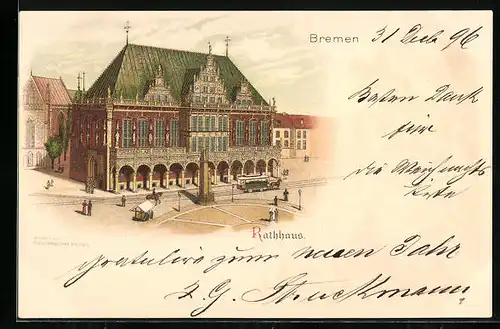 Bremen
31 Dec 96
Besten Dank
für
die Weihnachts
Karte
Rathhaus.
gratulire zum neuen Jahr
Struckmann